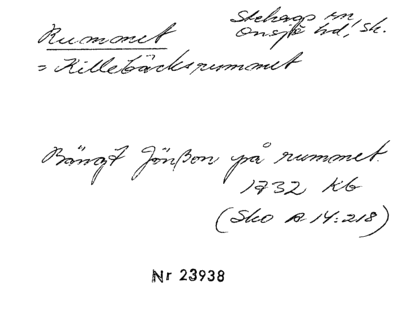 Rummet
Stehags sn
Onsjö hd, Sk.
= Killebäcksrummet
Bängt Jönßon på rummet
1732 Kb
(Sko A 14:218)
Nr 23938